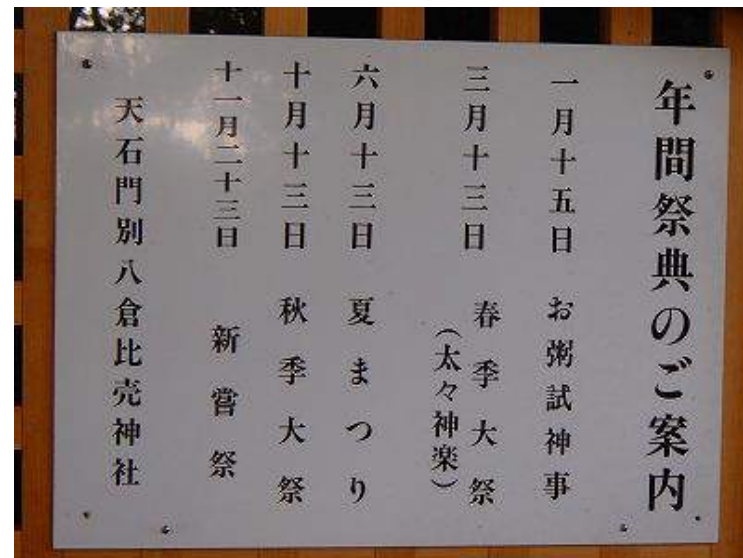 年間祭典のご案内
一月十五日 お粥試神事
三月十三日 春季大祭
(太々神楽)
六月十三日 夏まつり
十月十三日 秋季大祭
十一月二十三日 新嘗祭
天石門別八倉比売神社